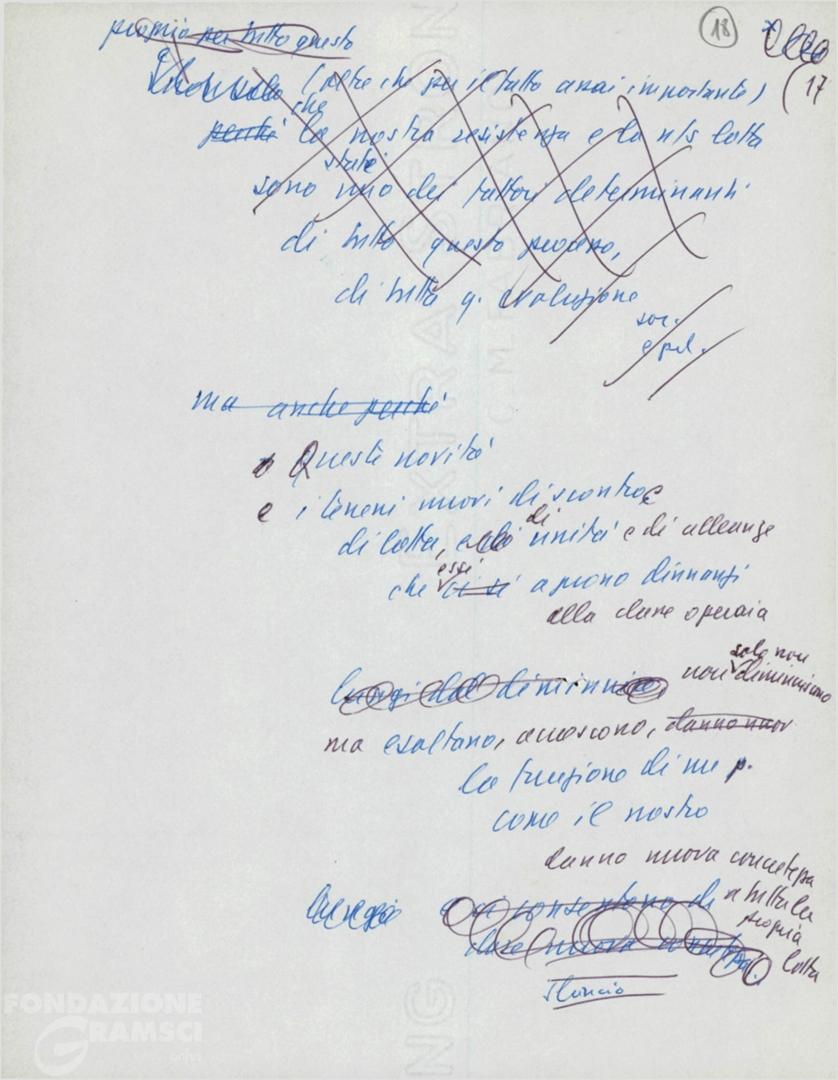 proprio per tutto questo
18
17
Non solo (oltre che per il fatto assai importante)
che
perché la nostra resistenza e la n/s lotta
state
sono uno dei fattori determinanti
di tutto questo processo,
di tutta q. evoluzione
soc.
e pol.
ma anche perché
Queste novità
e i terreni nuovi di scontro e
di lotta, di unità e di alleanze
che essi ci si aprono dinnanzi
alla classe operaia
lungi dal diminuire non solo non diminuiscono
ma esaltano, accrescono, danno nuov
la funzione di un p.
come il nostro
danno nuova concretezza
ci consentono di a tutta la
propria
dare nuova lotta
slancio
FONDAZIONE
GRAMSCI
onlus
EXTRA STRONG